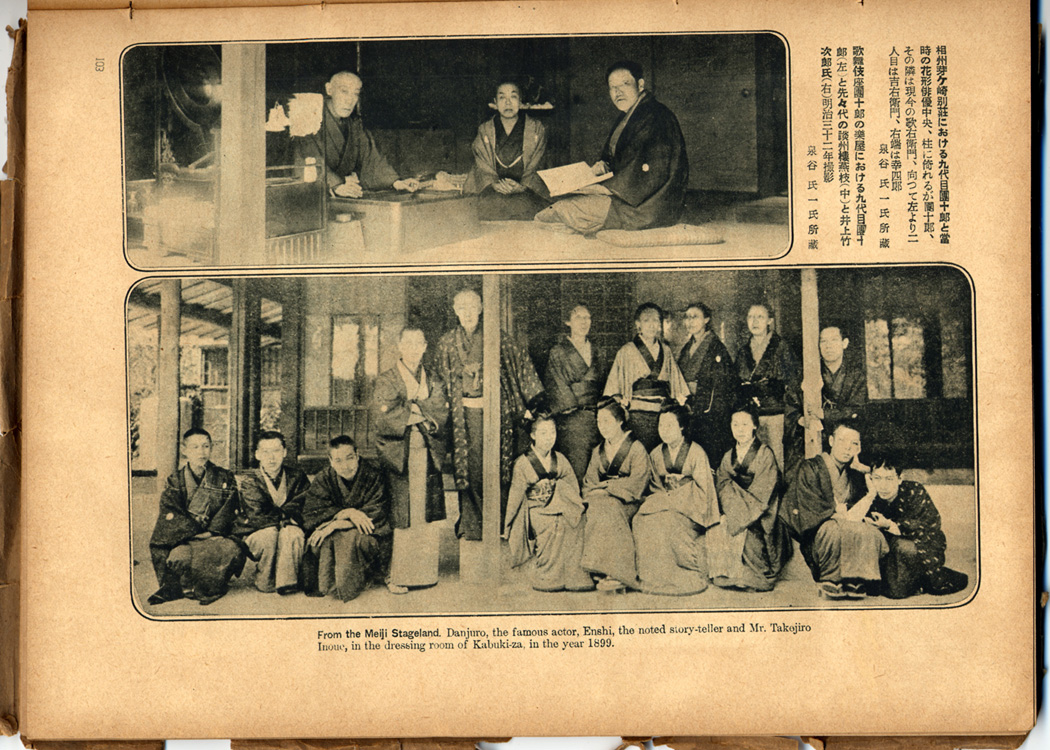 相州芽ケ崎別莊における九代目團十郎と當
時の花形俳優中央、柱に倚れるが團十郎、
その隣は現今の歌右衛門、向つて左より二
人目は吉右衛門、右端は幸四郎
泉谷氏一氏所藏
歌舞伎座團十郎の樂屋における九代目團十
郎(左)と先々代の談州樓燕枝(中)と井上竹
次郎氏(右)明治三十二年撮影
泉谷氏一氏所藏
103
From the Meiji Stageland. Danjuro, the famous actor, Enshi, the noted story-teller and Mr. Takejiro
Inoue, in the dressing room of Kabuki-za, in the year 1899.